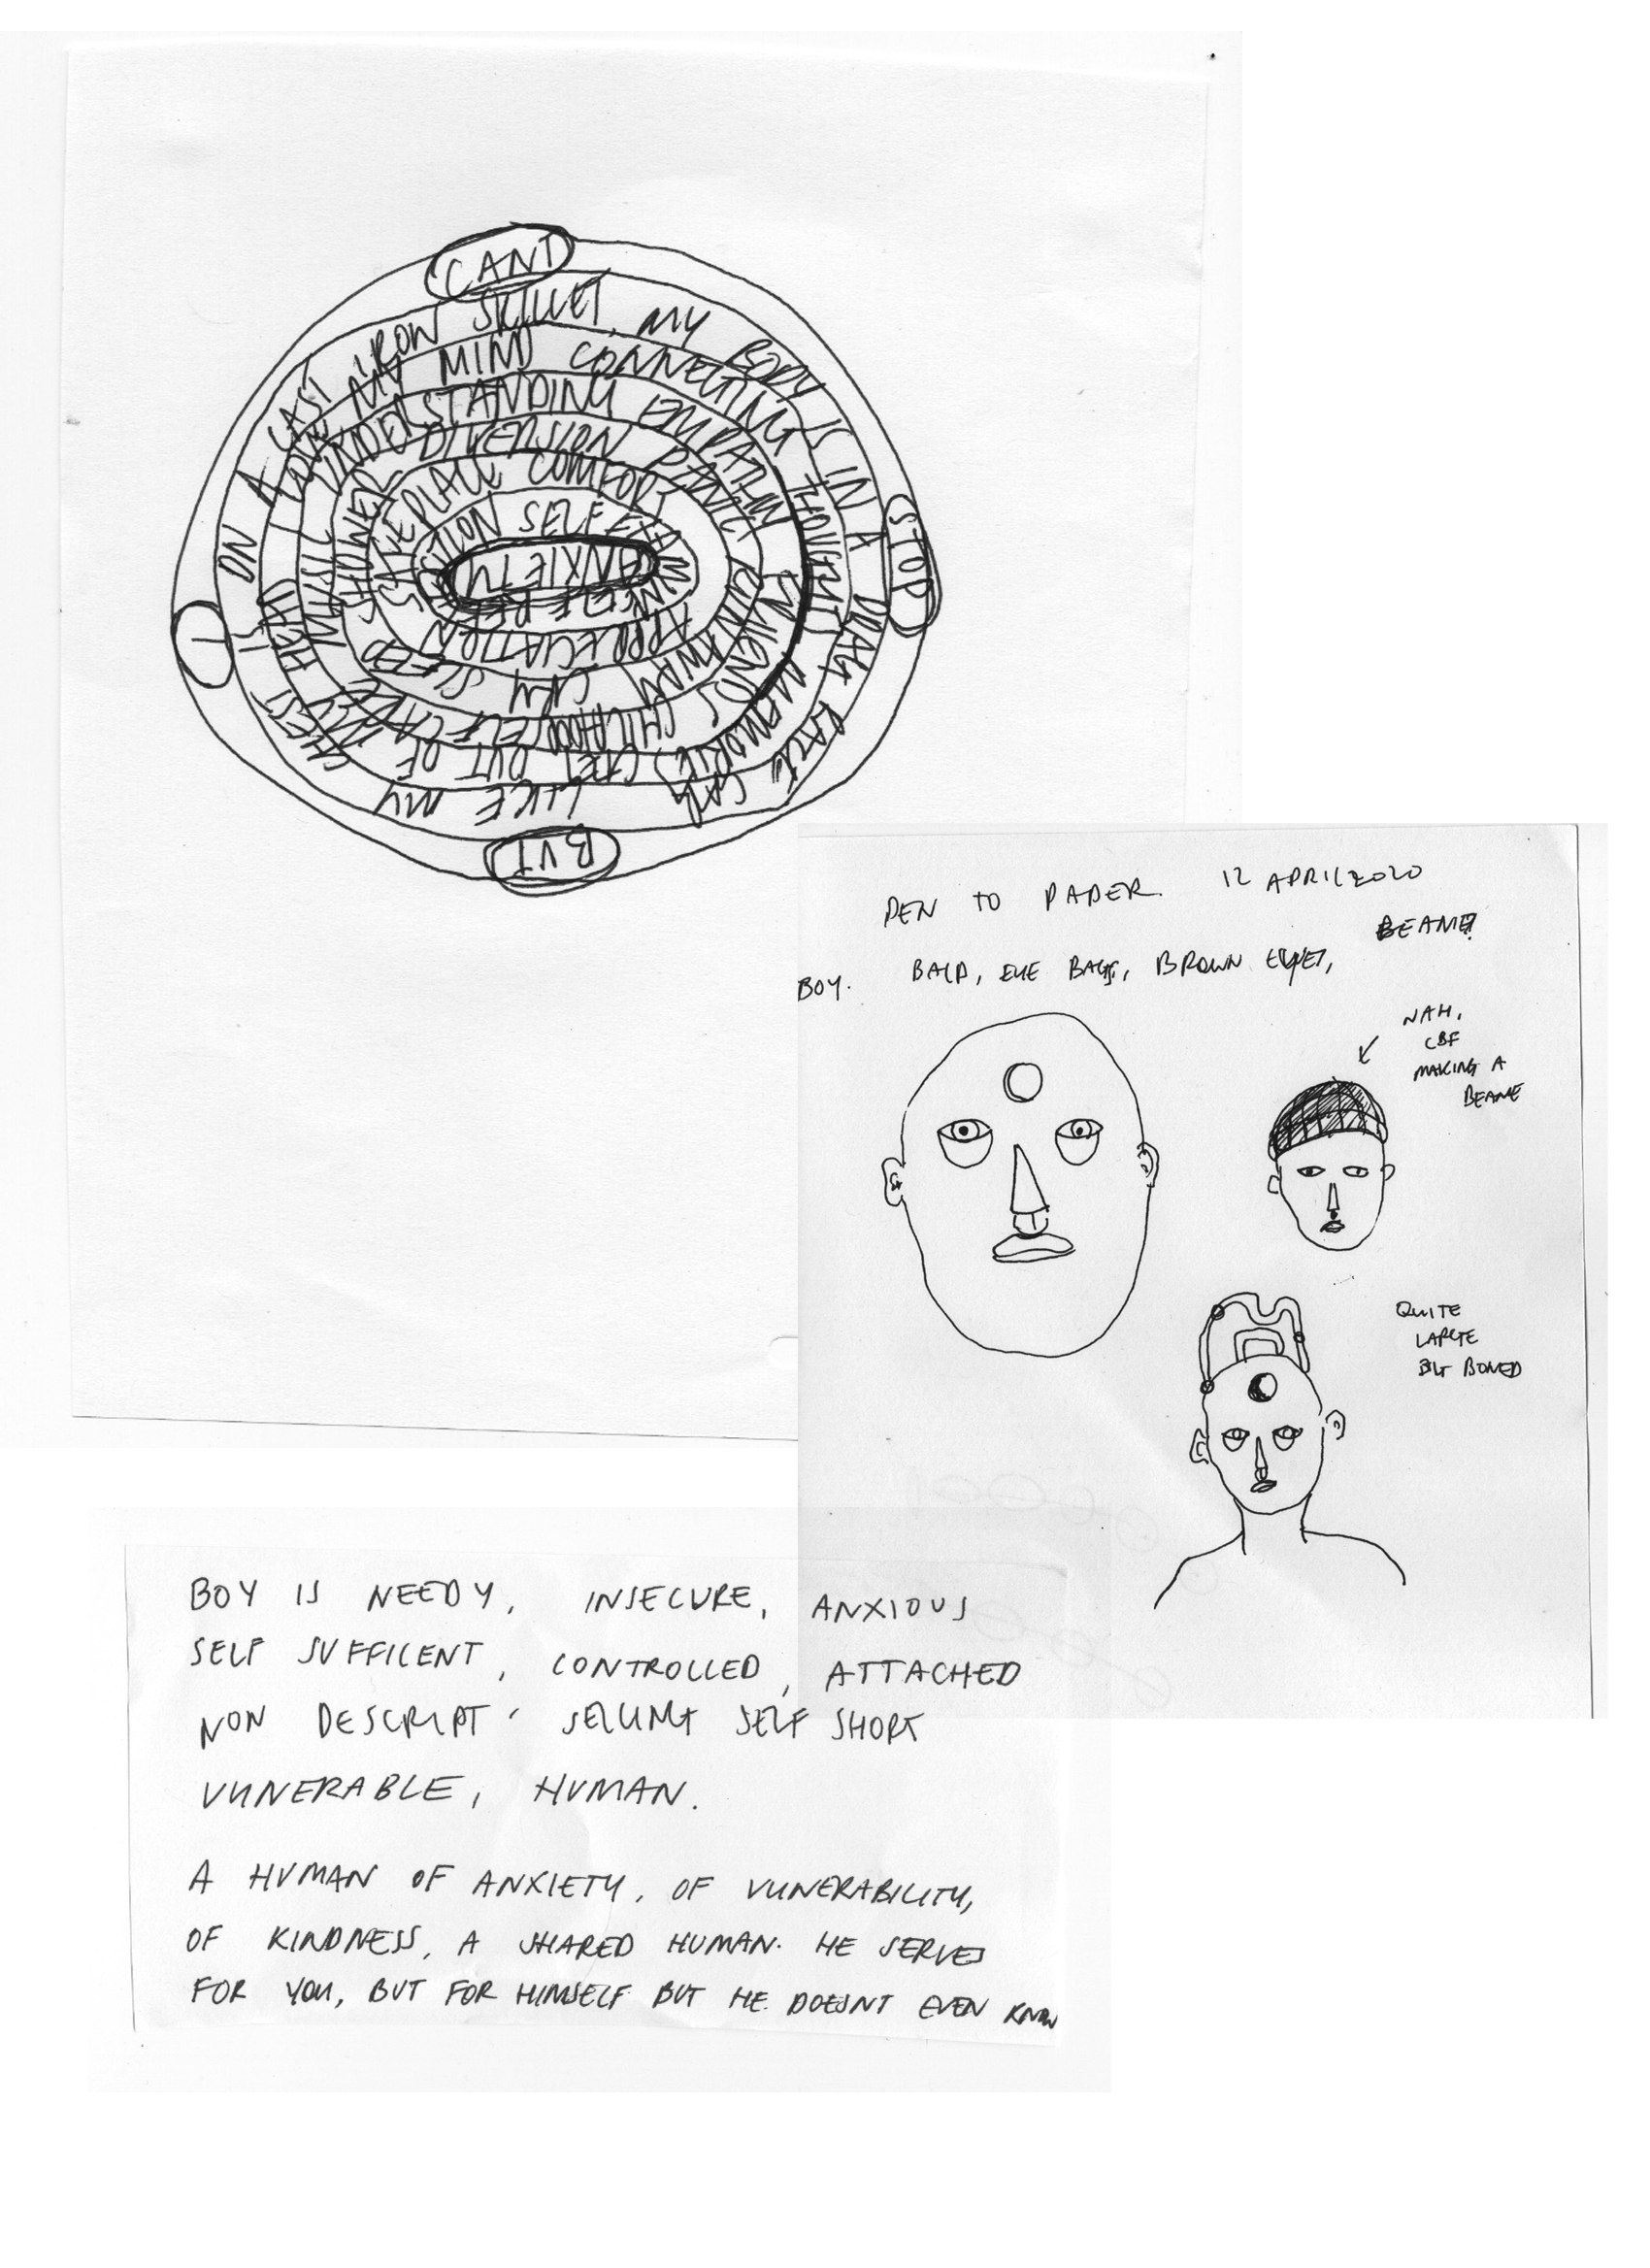 CANT
STOP
BUT
I
ON A CAST IRON SKILLET, MY BODY IS IN A
LIKE MY CHEST
MY MIND CONNECTING THOUGHTS MEMORIES GET OUT OF MY HEAD
MUSIC UNDERSTANDING CHILDHOOD SELF CARE
SHOWER DIVERSION PANIC CRY SLEEP
SAFE PLACE COMFORT APPRECIATION
SELF
ANXIETY
PEN TO PAPER. 12 APRIL 2020
BEANIE?
BOY. BALD, EYE BAGS, BROWN EYES,
NAH,
CBF
MAKING A
BEANIE
QUITE
LARGE
BIG BONED
BOY IS NEEDY, INSECURE, ANXIOUS
SELF SUFFICENT, CONTROLLED, ATTACHED
NON DESCRIPT. SELLING SELF SHORT
VUNERABLE, HUMAN.
A HUMAN OF ANXIETY, OF VUNERABILITY,
OF KINDNESS, A SHARED HUMAN. HE SERVES
FOR YOU, BUT FOR HIMSELF BUT HE DOESNT EVEN KNOW